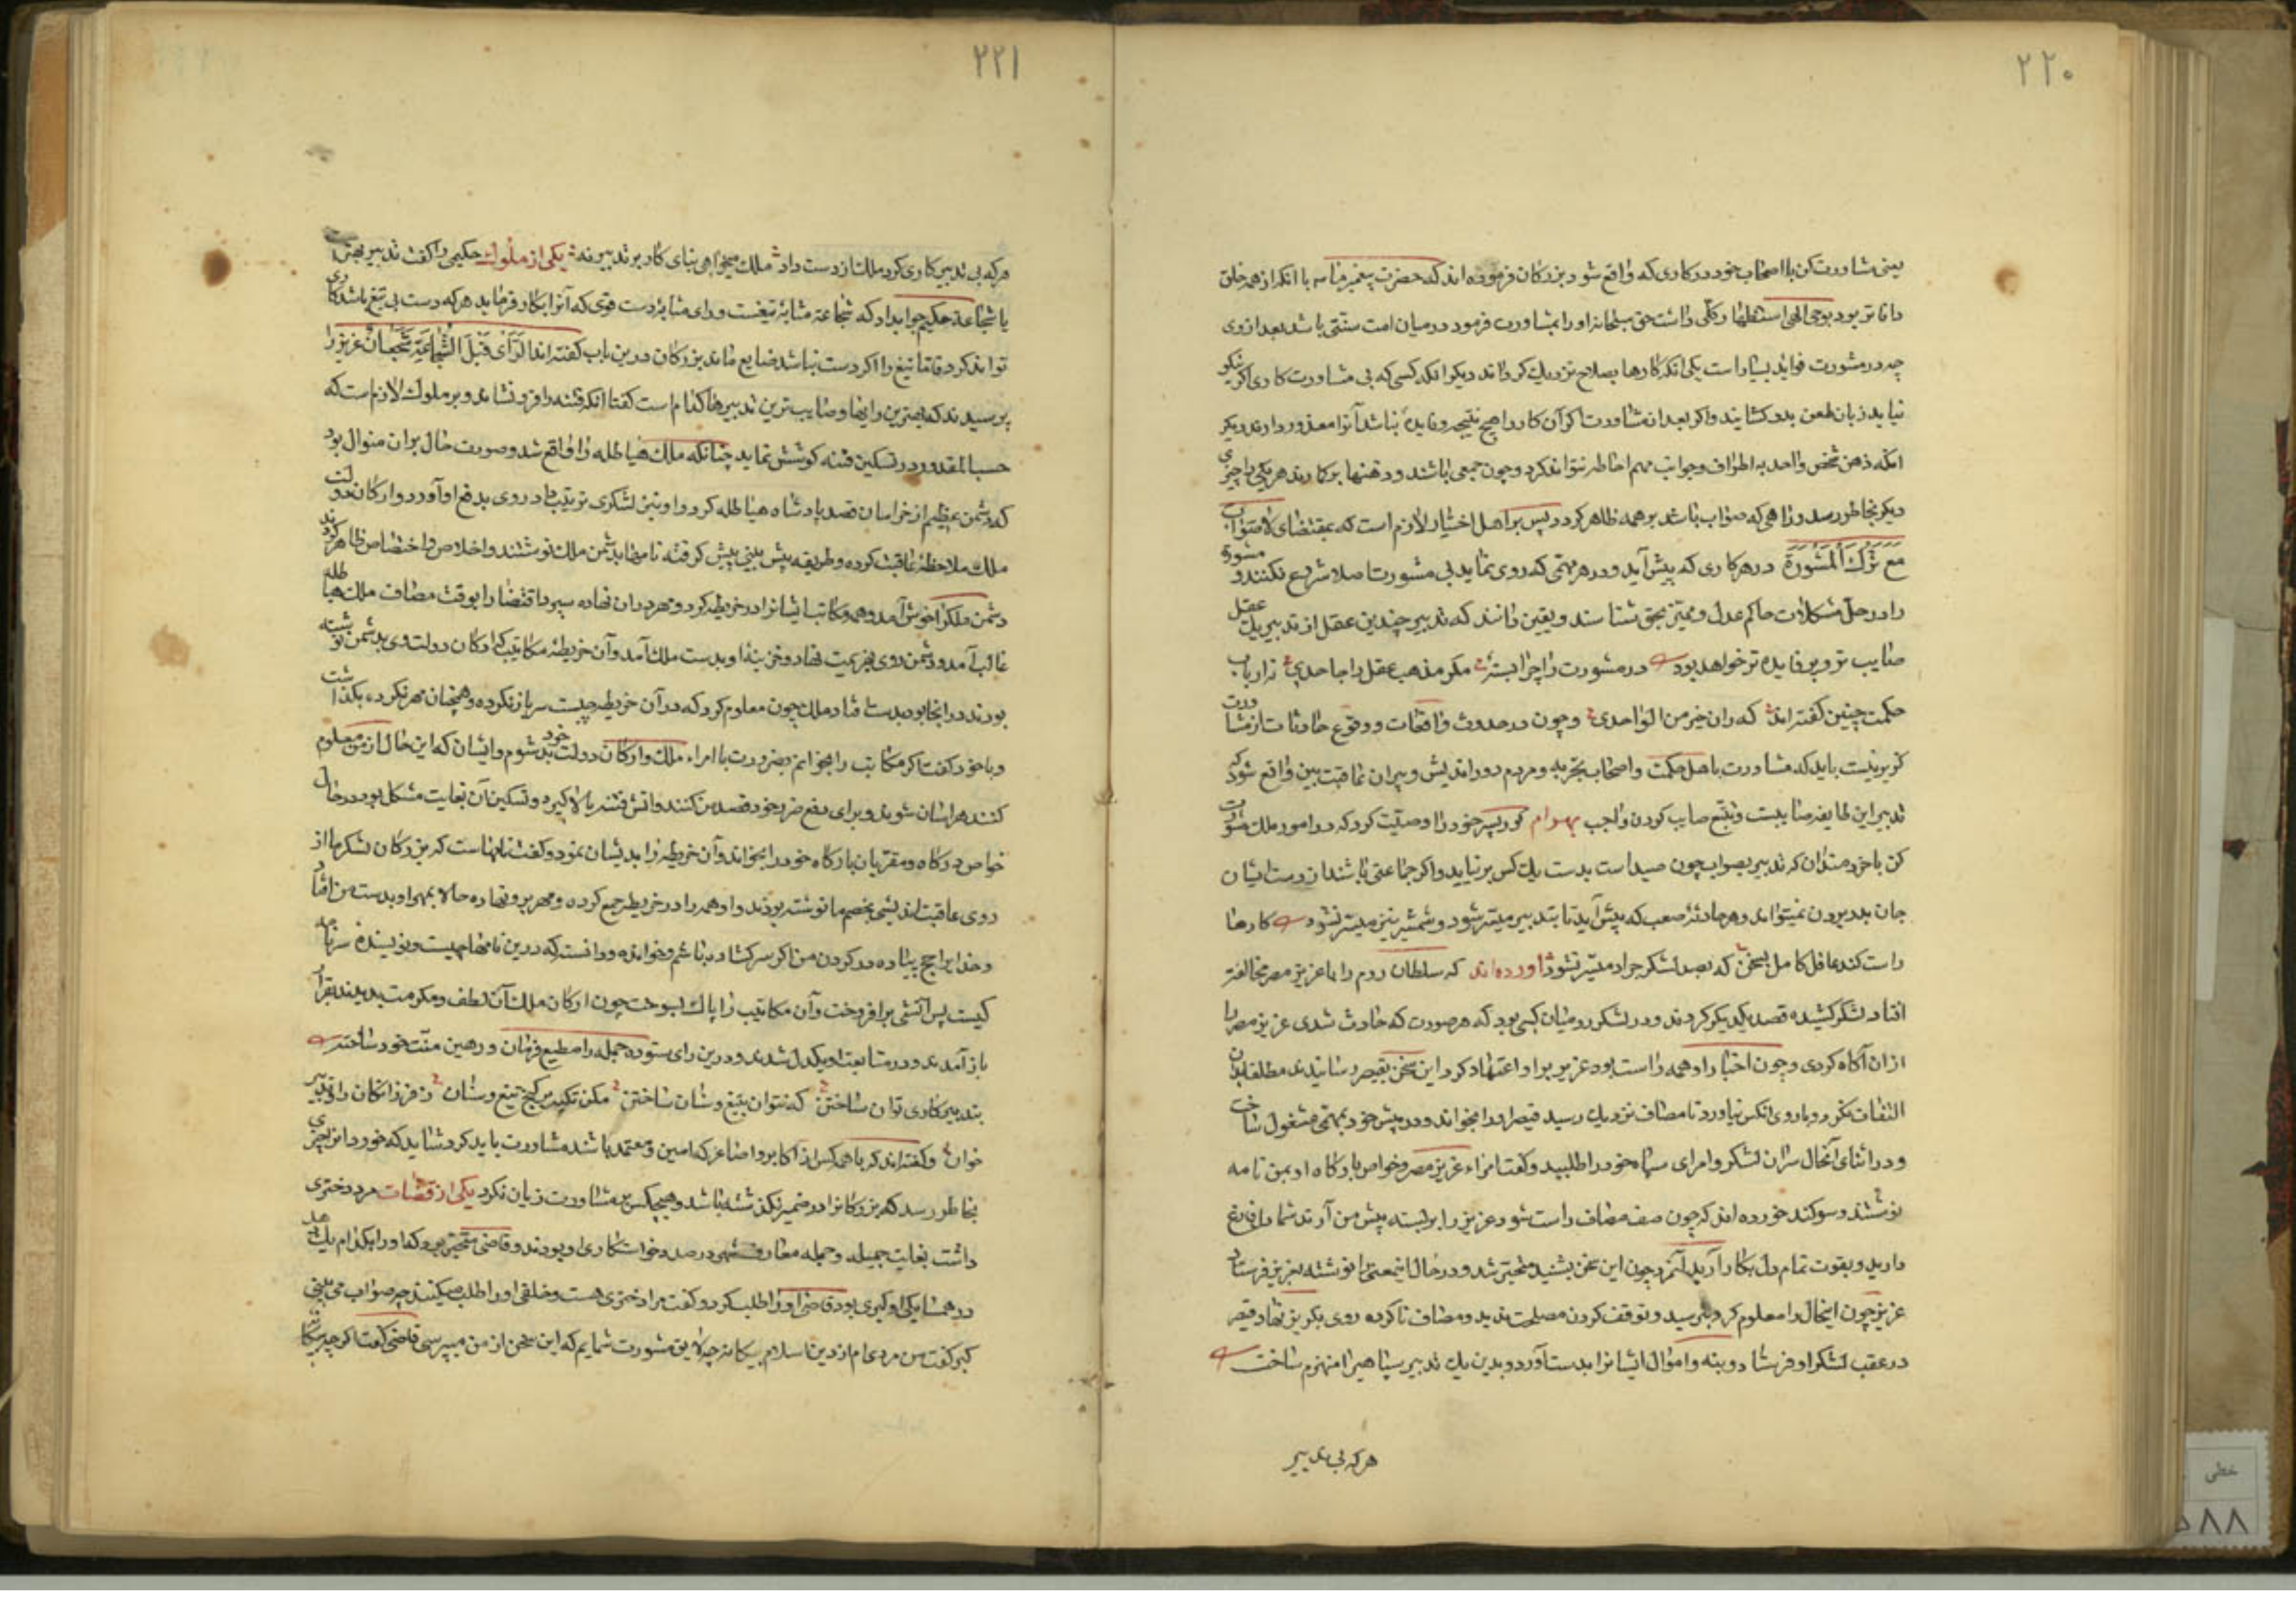 ۲۲۰
یعنی مشاورت کن با اصحاب خود در کاری که واقع شود بزرگان فرموده اند که حضرت پیغمبر با آنکه از همه خلق
دانا تر بود بوحی الهی استظهار کلی داشت حق سبحانه او را بمشاورت فرمود در میان امت سنتی باشد بعد از وی
چه در مشورت فواید بسیار است یکی آنکه کارها بصلاح نزدیک گرداند دیگر آنکه کسی که بی مشاورت کاری کند اگر نیکو
نیاید زبان طعن بدو گشایند و اگر بعد از مشاورت اگر آن کار را هیچ نتیجه و فایده نباشد او را معذور دارند دیگر
آنکه ذهن شخص واحد به اطراف و جوانب مهم احاطه نتواند کرد و چون جمعی باشند و ذهنها بر کار رند هر یکی را چیزی
دیگر بخاطر رسد و راهی که صواب باشد بر همه ظاهر گردد پس بر اهل اختیار لازم است که بمقتضای لا صواب
مَعَ تَرْكِ الْمَشْوَرَةِ در هر کاری که پیش آید و در هر مهمی که روی نماید بی مشورت اصلا شروع نکنند و مشورة
را در حل مشکلات حاکم عدل و ممیز بحق شناسند و یقین دانند که تدبیر چندین عقل از تدبیر یک عقل
صایب تر و پر فایده تر خواهد بود در مشورت را چرا بسته مگر مذهب عقل را جاحدی ز ارباب
حکمت چنین گفته اند که ران خیر من الواحدی و چون در حدوث واقعات و وقوع حادثات از مشاورت
گریز نیست باید که مشاورت با اهل حکمت و اصحاب تجربه و مردم دور اندیش و پیران عاقبت بین واقع شود که
تدبیر این طایفه صایبست و تتبع صایب کردن واجب بهرام گور پسر خود را وصیت کرد که در امور ملک مشورت
کن با خردمندان که تدبیر بصواب چون صید است بدست یک کس بر نیاید و اگر جماعتی باشند از دست ایشان
جان بدر بردن نمیتواند و هر حادثهٔ صعب که پیش آید تا بتدبیر میسر شود و شمشیر نیز میسر نشود کارها
راست کند عاقل کامل بسخن که بصد لشکر جرار میسر نشود آورده اند که سلطان روم را با عزیز مصر مخالفت
افتاد لشکر کشیده قصد یکدیگر کردند و در لشکر روم کسی بود که هر صورت که حادث شدی عزیز مصر را
از آن آگاه کردی و چون اخبار او همه راست بود عزیز بر او اعتماد کرد این سخن بقیصر رسانیدند مطلقا بدان
التفات نکرد و با روی آنکس نیاورد تا مصاف نزدیک رسید قیصر او را بخواند و در پیش خود بمهمی مشغول ساخت
و در اثنای آنحال سران لشکر و امرای سپاه خود را طلبید و گفت امراء عزیز مصر و خواص بارگاه او بمن نامه
نوشتند و سوگند خورده اند که چون صف مصاف راست شود عزیز را بر بسته پیش من آرند شما دل فارغ
دارید و بقوت تمام دل بکار آرید آنمرد چون این سخن بشنید متحیر شد و در حال اینمعنی را نوشته بعزیز فرستاد
عزیز چون اینحال را معلوم کرد بترسید و توقف کردن مصلحت ندید و مصاف ناکرده روی بگریز نهاد قیصر
در عقب لشکر او فرستاد و بنه و اموال ایشانرا بدست آورد و بدین یک تدبیر سپاهی را منهزم ساخت
هر که بی تدبیر
۲۲۱
هر که بی تدبیر کاری کرد ملک از دست داد ملک میخواهی بنای کار بر تدبیر نه یکی از ملوک حکیمی را گفت تدبیر بهتر است
یا شجاعت حکیم جوابداد که شجاعة مثابهٔ تیغست و رای مثابهٔ دست قوی که آنرا بکار فرماید هر که دست بی تیغ باشد کاری
تواند کرد فاما تیغ را اگر دست نباشد ضایع ماند بزرگان درین باب گفته اند الرَّأْيُ قَبْلَ الشَّجَاعَةِ شجعان عزیز را
پرسیدند که بهترین رایها و صایب ترین تدبیرها کدام است گفت آنکه فتنه را فرو نشاند و بر ملوک لازم است که
حسب المقدور در تسکین فتنه کوشش نماید چنانکه ملک هیاطله را واقع شد و صورت حال بر آن منوال بود
که دشمن عظیم از خراسان قصد پادشاه هیاطله کرد و او نیز لشکری ترتیب داد روی بدفع او آورد و ارکان دولت
ملک ملاحظهٔ عاقبت کرده و طریقه پیش بینی پیش گرفته نامها بدشمن ملک نوشتند و اخلاص و اختصاص ظاهر کردند
دشمن ملک را خوش آمد و همه مکاتب ایشانرا در خریطه کرد و مهر بر آن نهاده سپرد اقتضا را بوقت مصاف ملک هیاطله
غالب آمد و دشمن روی بهزیمت نهاد و خزینهٔ او بدست ملک آمد و آن خریطهٔ مکاتیب که ارکان دولت وی بدشمن نوشته
بودند در آنجا بود بدست افتاد ملک چون معلوم کرد که در آن خریطه چیست سر باز نکرده و همچنان مهر نکرده بگذاشت
و با خود گفت اگر مکاتیب را بخوانم بضرورت با امراء ملک و ارکان دولت خود بد شوم و ایشان که این حال از من معلوم
کنند هراسان شوند و برای دفع ضرر خود قصد من کنند و آتش فتنه بالا گیرد و تسکین آن بغایت مشکل بود در حال
خواص درگاه و مقربان بارگاه خود را بخواند و آن خریطه را بدیشان نمود و گفت نامهاست که بزرگان لشکر ما از
روی عاقبت اندیشی بخصم ما نوشته بودند و او همه را در خریطه جمع کرده و مهر برو نهاده حالا بمهر او بدست من افتاد
و خدایرا حج پیاده در گردن من اگر سر گشاده باشم و خوانده و دانسته که درین نامها چیست و نویسندهٔ سر نامه
کیست پس آتشی برافروخت و آن مکاتیب را پاک بسوخت چون ارکان ملک آن لطف و مکرمت بدیدند بقرار
باز آمدند و در متابعت او یکدل شدند و درین رای ستوده جمله را مطیع فرمان و رهین منت خود ساخت
بتدبیر کاری توان ساختن که نتوان بتیغ و سنان ساختن مکن تکیه بر گنج و تیغ و سنان ز فرزانگان رای و تدبیر
خوان و گفته اند که با همه کس از اکابر و اصاغر که امین و معتمد باشند مشاورت باید کرد شاید که خورد را نیز چیزی
بخاطر رسد که بزرگانرا در ضمیر نگذشته باشد و هیچکس بمشاورت زیان نکرد یکی از قضات مرو دختری
داشت بغایت جمیله و جمله معارف شهر در صدد خواستگاری او بودند و قاضی متحیر بود که او را بکدام یک دهد
در همسایگی او گبری بود قاضی او را طلب کرد و گفت مرا دختری هست و خلقی او را طلب میکنند چه صواب می بینی
گبر گفت من مردی ام از دین اسلام بیگانه چه لایق مشورت شمایم که این سخن از من میپرسی قاضی گفت اگر چه بیگانه
خطی